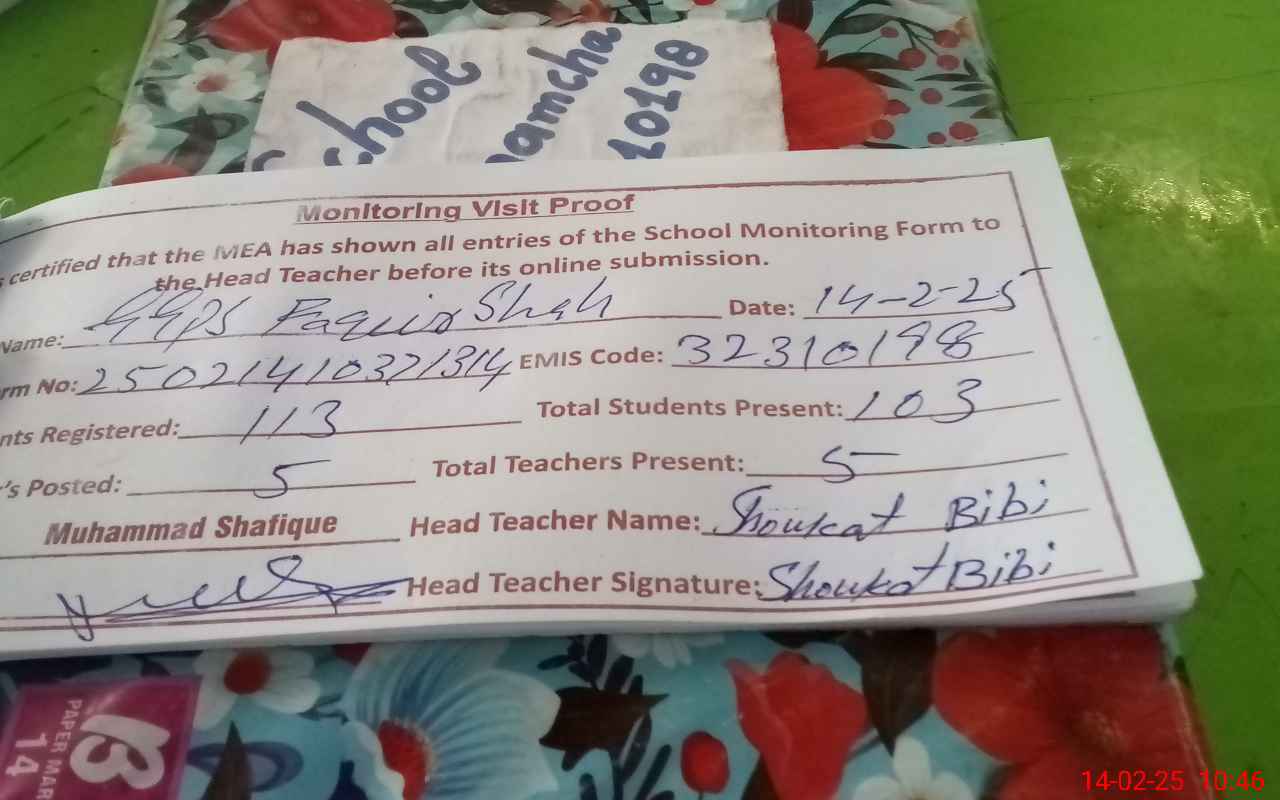 chool
amcha
10198
Monitoring Visit Proof
certified that the MEA has shown all entries of the School Monitoring Form to
the Head Teacher before its online submission.
Name: GGPS Faquir Shah Date: 14-2-25
rm No: 25021410321314 EMIS Code: 32310198
nts Registered: 113 Total Students Present: 103
's Posted: 5 Total Teachers Present: 5
Muhammad Shafique Head Teacher Name: Shoukat Bibi
Head Teacher Signature: Shoukat Bibi
13
PAPER MAR
14
14-02-25 10:46